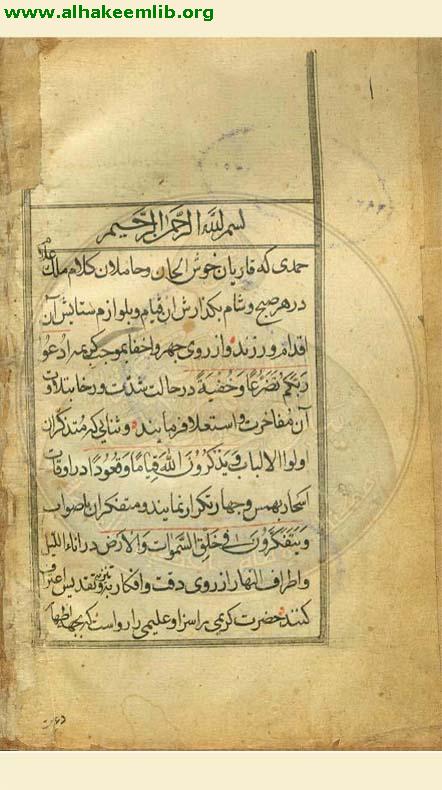 www.alhakeemlib.org
بسم الله الرحمن الرحیم
حمدی که قاریان خوش الحان و حاملان کلام ملک علام
در هر صبح و شام بگذارش ان قیام و بلوازم ستایش آن
اقدام ورزند و از روی جهر و اخفا بموجب کریمه ادعو
ربکم تضرعا و خفیة در حالت شدت و رخا بتلاوت
آن مفاخرت و استعلا فرمایند و ثنائی که متذکران
اولوا الالباب و یذکرون الله قیاما و قعودا در اوقات
اسحار بهمس و جهار تکرار نمایند و متفکران باصواب
و یتفکرون فی خلق السموات والارض در اناء اللیل
و اطراف النهار از روی دقت و افکار بتنزیه و تقدیس اعتراف
کنند حضرت کریمی را سزا و علیمی را رواست که بجهة